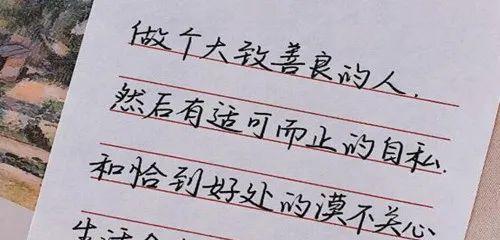 做个大致善良的人.
然后有适可而止的自私.
和恰到好处的漠不关心
生活